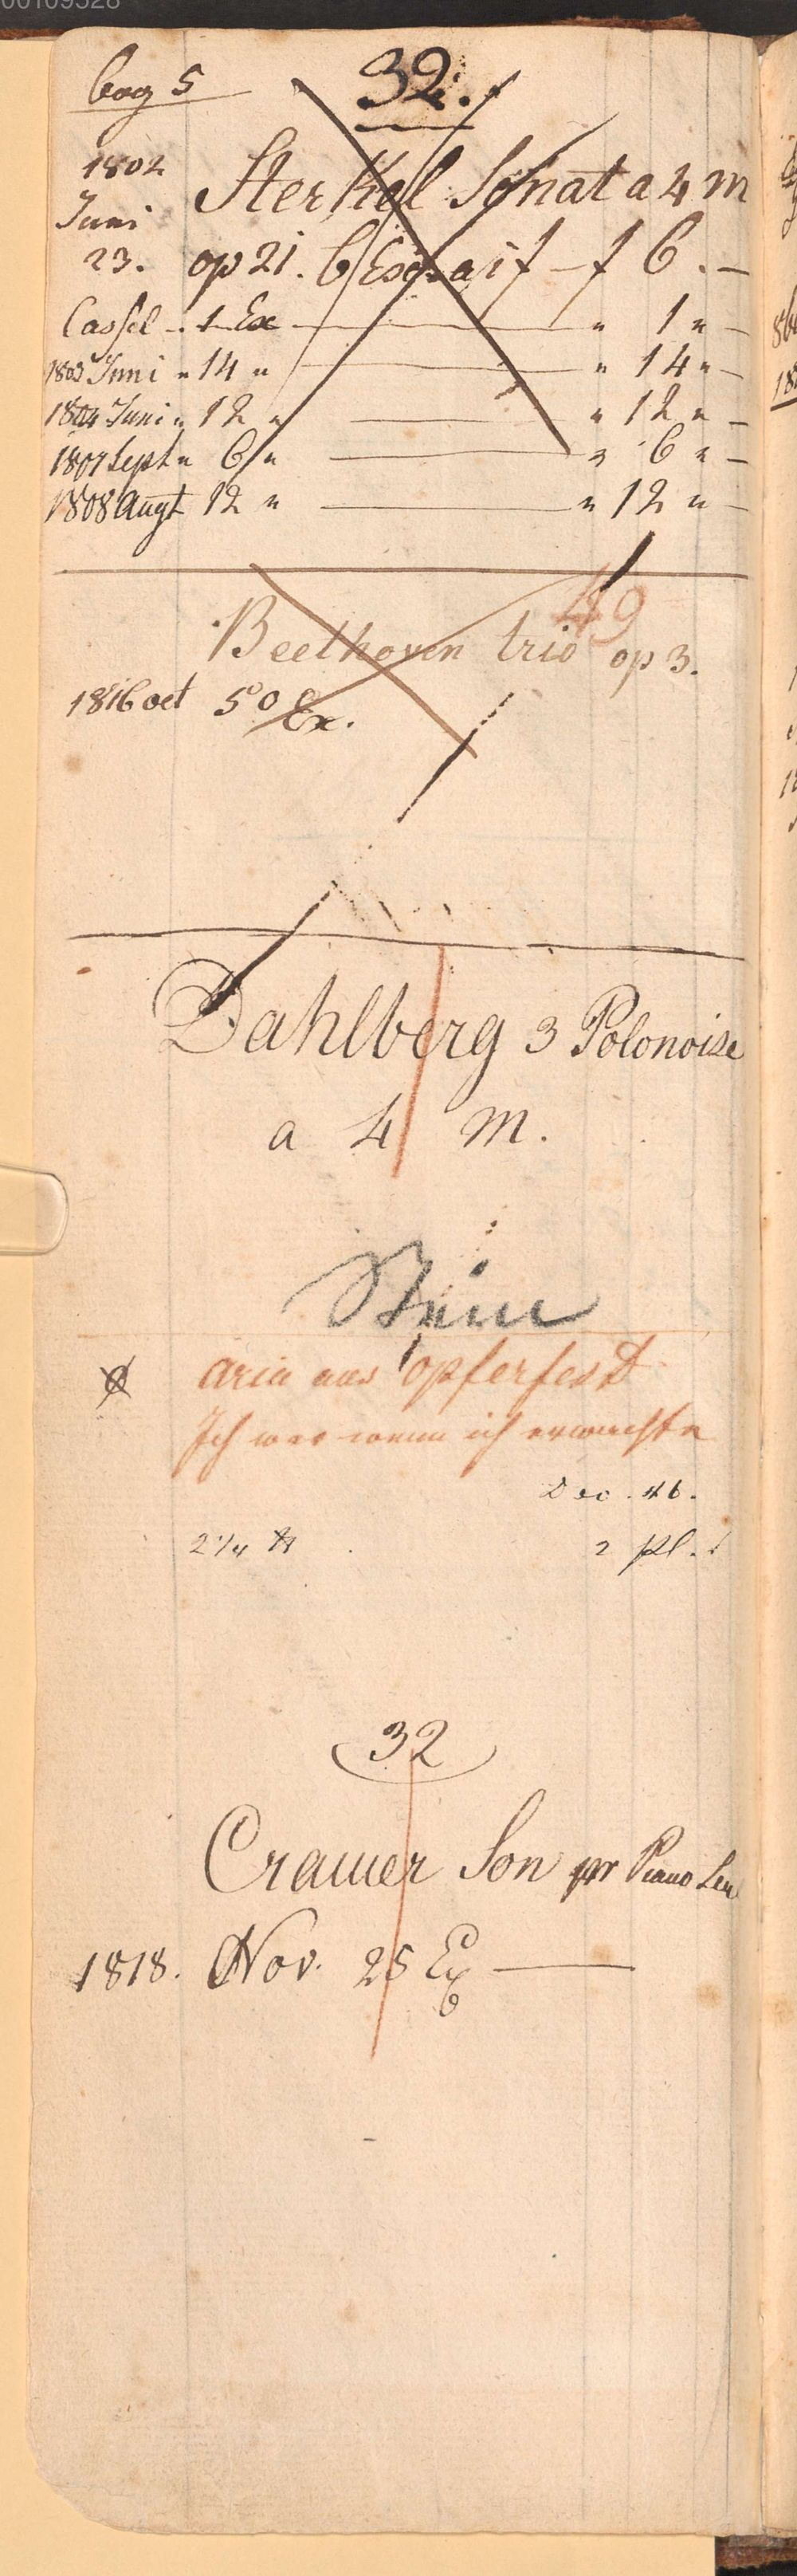 00109528
bog 5
32.
1802
Juni
23.
Sterkel Sonat a 4 m
op 21. 6 Ex a 1 f - f 6. -
Cassel - 1 Ex — " 1 " -
1803 Juni " 14 " — " 14 " -
1804 Juni " 12 " — " 12 " -
1807 Sept " 6 " — " 6 " -
1808 Augt 12 " — " 12 " -
49
Beethoven trio op 3.
1816 oct 50 Ex.
Dahlberg 3 Polonoise
a 4 m.
Stein
aria aus opferfest
Ich war wenn ich erwachte
Dec. 46.
2 1/4 2 pl.
32
Cramer Son pr Piano
1818. Nov. 25 Ex —